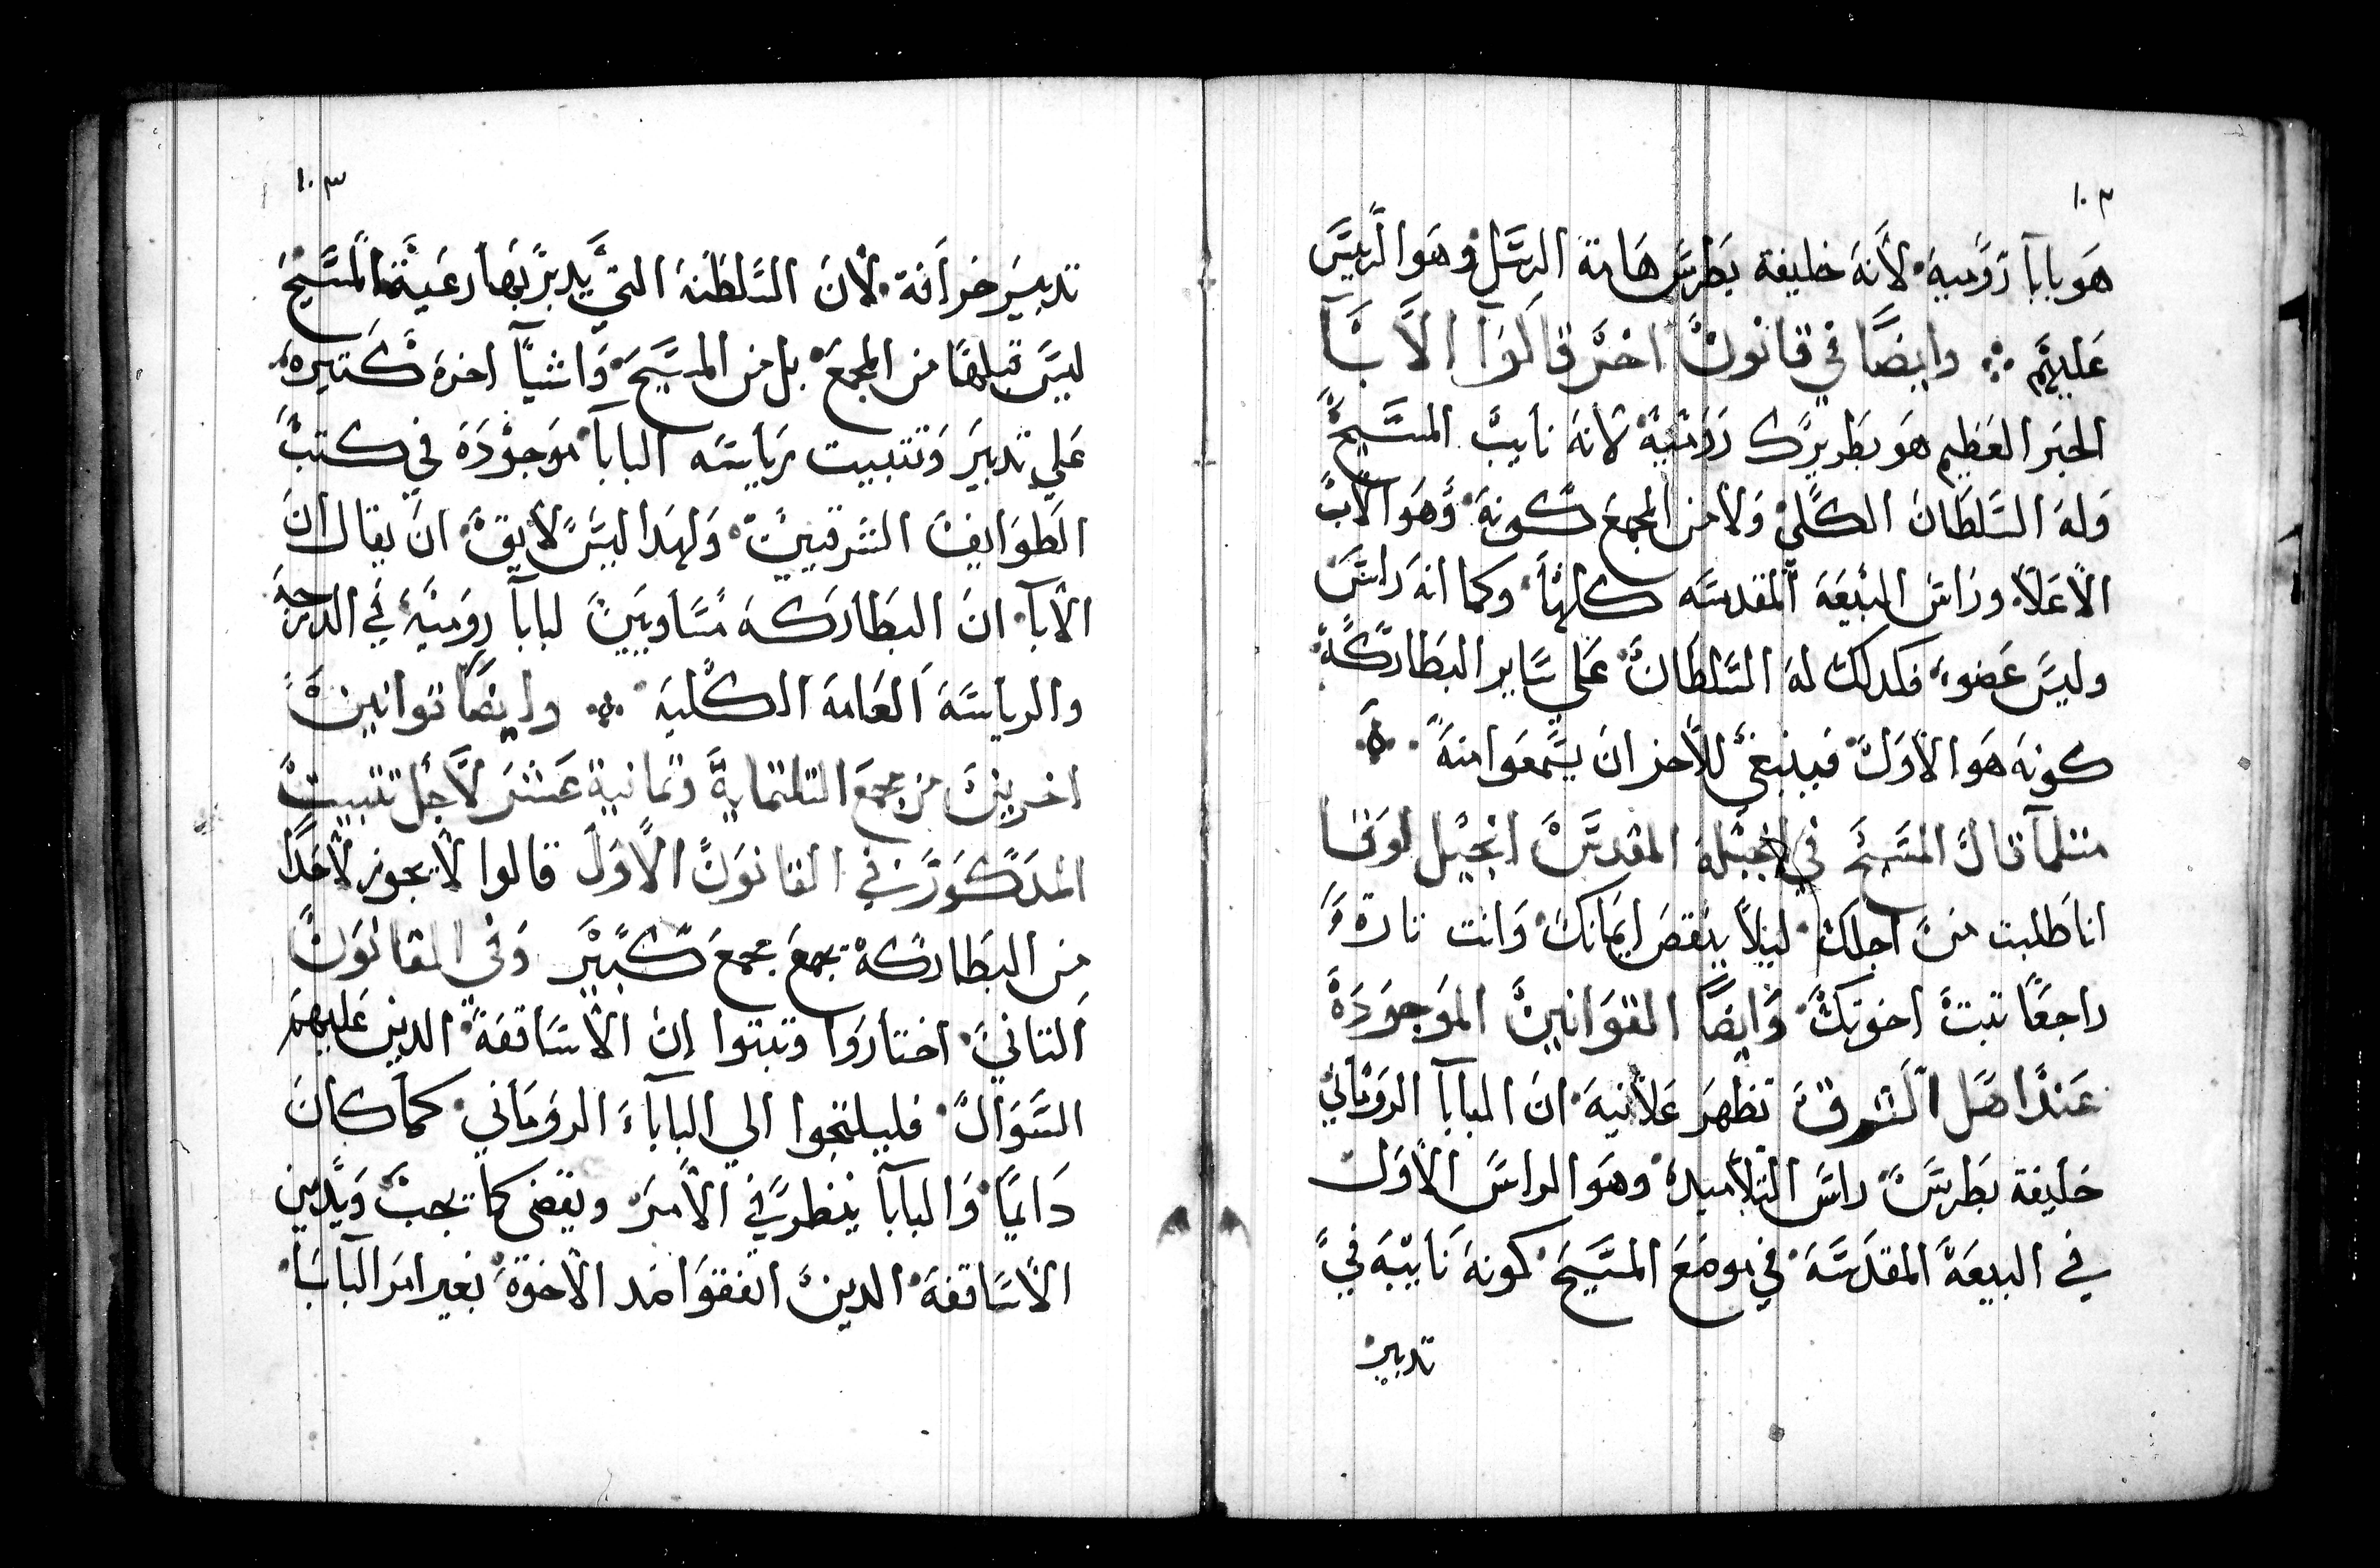 ١٠٢
هو بابا رومية لانه خليفة بطرس هامة الرسل وهو الريس
عليهم ⁘ وايضا في قانون اخر قالوا الابا
الحبر العظيم هو بطريرك رومية لانه نايب المسيح
وله السلطان الكلي ولا من المجمع كونه وهو الاب
الاعلا وراس البيعه المقدسه كلها وكما انه راس
وليس عضو فكدلك له السلطان علي ساير البطاركة
كونه هو الاول فينبغي للاخر ان يسمعوا منه ⁘
متلما قال المسيح في انجيله المقدس انجيل لوقا
انا طلبت من اجلك ليلا ينقص ايمانك وانت تارة
راجعا تبت اخوتك وايضا القوانين الموجودة
عند اهل الشرق تظهر علانيه ان البابا الروماني
خليفة بطرس راس التلاميد وهو الراس الاول
في البيعة المقدسة في موضع المسيح كونه نايبه في
تدبير
١٠٣
تدبير خرافه لان السلطنة التي يدبر بها رعية المسيح
ليس قبلها من المجمع بل من المسيح واشيآ اخرة كتيره
علي تدبير وتتبيت رياسة البابا موجودة في كتب
الطوايف الشرقيين ولهدا ليس لايق ان يقال ان
الابآ ان البطاركة مساويين لبابا رومية في الدرجة
والرياسة العامة الكلية ⁘ وايضا قوانين
اخرين من مجمع التلتماية وتمانية عشر لاجل تتبيت
المدكور في القانون الاول قالوا لا يجوز لاحد
من البطاركة يجمع مجمع كبير وفي القانون
التاني اختاروا وتبتوا ان الاساقفة الدين عليهم
السوال فليلتجوا الي البابا الروماني كما كان
دايما والبابا ينظر في الامر ويقضي كما يجب ويدين
الاساقفة الدين اتفقوا ضد الاخوة بغير امر البابا